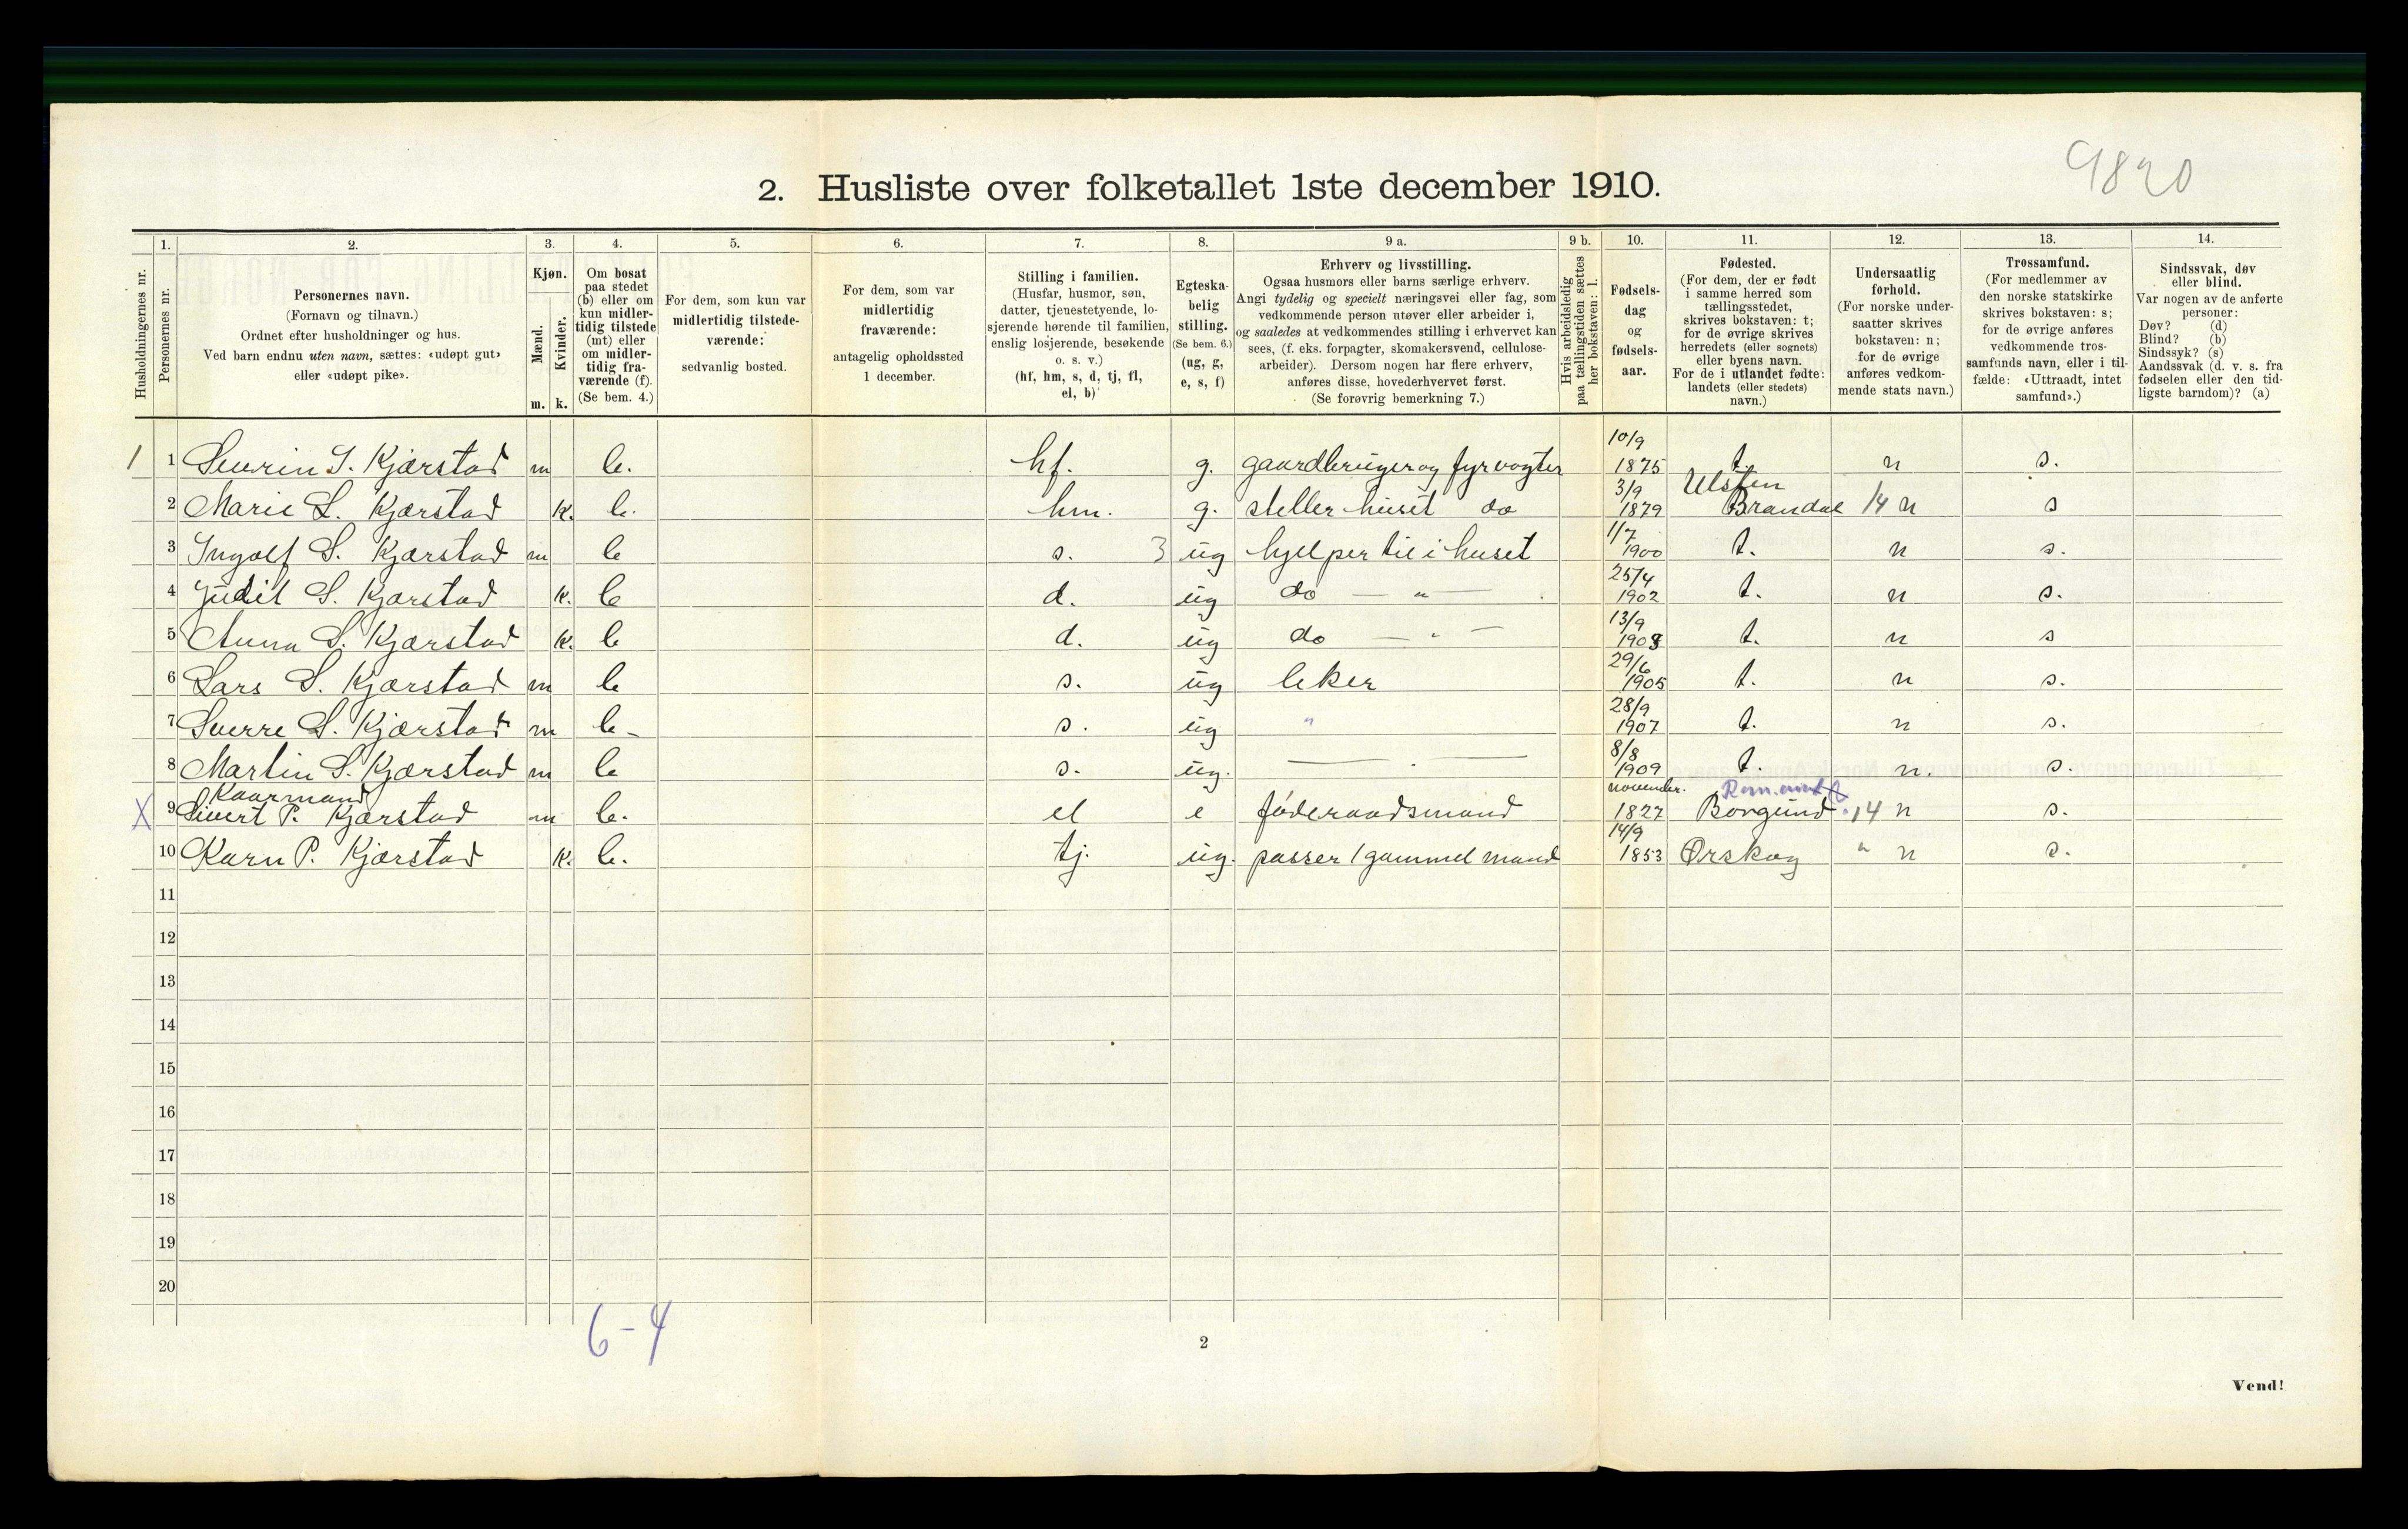 9820
2. Husliste over folketallet 1ste december 1910.
1. 2. 3. 4. 5. 6. 7. 8. 9 a. 9 b. 10. 11. 12. 13. 14.
Husholdningernes nr.
Personernes nr.
Personernes navn.
(Fornavn og tilnavn.)
Ordnet efter husholdninger og hus.
Ved barn endnu uten navn, sættes: «udøpt gut»
eller «udøpt pike».
Kjøn.
Mænd.
Kvinder.
m. k.
Om bosat
paa stedet
(b) eller om
kun midler-
tidig tilstede
(mt) eller
om midler-
tidig fra-
værende (f).
(Se bem. 4.)
For dem, som kun var
midlertidig tilstede-
værende:
sedvanlig bosted.
For dem, som var
midlertidig
fraværende:
antagelig opholdssted
1 december.
Stilling i familien.
(Husfar, husmor, søn,
datter, tjenestetyende, lo-
sjerende hørende til familien,
enslig losjerende, besøkende
o. s. v.)
(hf, hm, s, d, tj, fl,
el, b)
Egteska-
belig
stilling.
(Se bem. 6.)
(ug, g,
e, s, f)
Erhverv og livsstilling.
Ogsaa husmors eller barns særlige erhverv.
Angi tydelig og specielt næringsvei eller fag, som
vedkommende person utøver eller arbeider i,
og saaledes at vedkommendes stilling i erhvervet kan
sees, (f. eks. forpagter, skomakersvend, cellulose-
arbeider). Dersom nogen har flere erhverv,
anføres disse, hovederhvervet først.
(Se forøvrig bemerkning 7.)
Hvis arbeidsledig
paa tællingstiden sættes
her bokstaven: l.
Fødsels-
dag
og
fødsels-
aar.
Fødested.
(For dem, der er født
i samme herred som
tællingsstedet,
skrives bokstaven: t;
for de øvrige skrives
herredets (eller sognets)
eller byens navn.
For de i utlandet fødte:
landets (eller stedets)
navn.)
Undersaatlig
forhold.
(For norske under-
saatter skrives
bokstaven: n;
for de øvrige
anføres vedkom-
mende stats navn.)
Trossamfund.
(For medlemmer av
den norske statskirke
skrives bokstaven: s;
for de øvrige anføres
vedkommende tros-
samfunds navn, eller i til-
fælde: «Uttraadt, intet
samfund».)
Sindssvak, døv
eller blind.
Var nogen av de anførte
personer:
Døv? (d)
Blind? (b)
Sindssyk? (s)
Aandssvak (d. v. s. fra
fødselen eller den tid-
ligste barndom)? (a)
1 1 Severin S. Kjærstad m b. hf. g. gaardbruger og fyrvogter 10/9 1875 t. n s.
2 Marie L. Kjærstad k. b. hm. g. steller huset do 3/9 1879 Ulsten Brandal 14 n s
3 Ingolf S. Kjærstad m b s. 3 ug hjelper til i huset 1/7 1900 t. n s.
4 Judit S. Kjærstad k. b d. ug do — " — 25/4 1902 t. n s.
5 Anna S. Kjærstad k. b d. ug do — " — 13/9 1903 t. n s
6 Lars S. Kjærstad m b s. ug leker 29/6 1905 t. n s.
7 Sverre S. Kjærstad m b - s. ug " 28/9 1907 t. n s.
8 Martin S. Kjærstad m b s. ug. — " — 8/8 1909 t. n. s.
X 9 Kaarmand Sivert P. Kjærstad m b. el e föderaadsmand november. 1827 Borgund 14 n s.
10 Karn P. Kjærstad k. b. tj. ug. passer 1 gammel mand 14/9 1853 Ørskog " n s.
11
12
13
14
15
16
17
18
19
20
6-4
2
Vend!